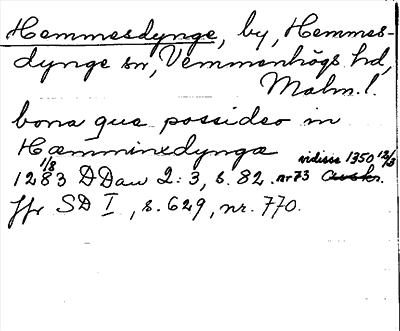 Hemmesdynge, by, Hemmes-
dynge sn, Vemmenhögs hd,
Malm. l.
bona que possideo in
Hæmminxdyngæ
1283 1/8 DDan 2:3, s. 82. nr 73 vidisse 1350 12/3 avskr.
jfr SD I, s. 629, nr. 770.